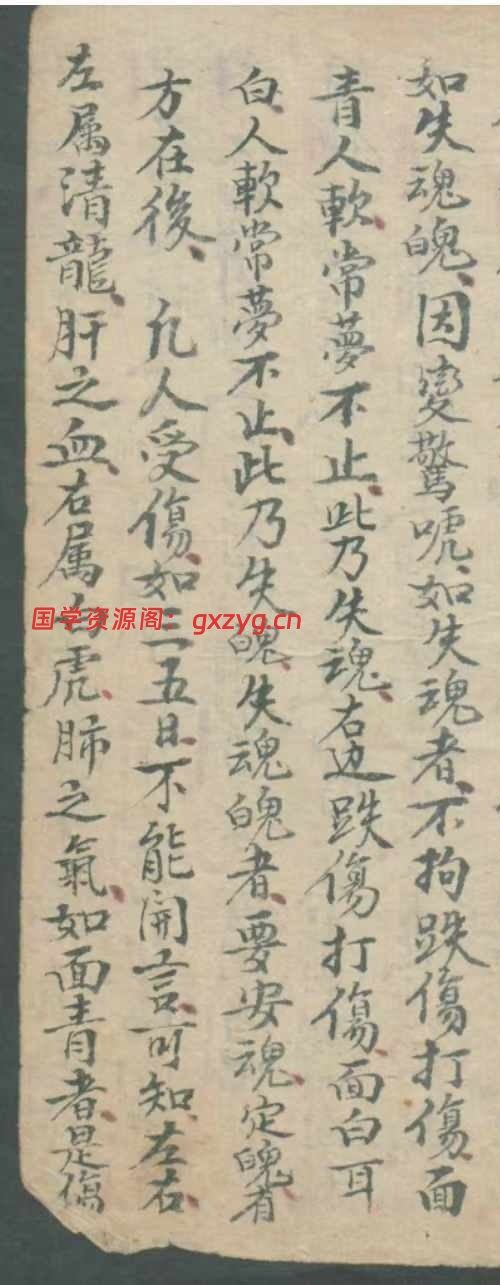 如失魂魄、因变驚唬、如失魂者、不拘跌傷打傷、面
青人軟、常夢不止、此乃失魂、右边跌傷打傷、面白耳
白、人軟常夢不止、此乃失魄、失魂魄者、要安魂、定魄、有
方在後、凡人受傷、如三五日、不能開言、可知左右、
左属清龍、肝之血、右属白虎、肺之氣、如面青者、是傷
国学资源阁：gxzyg.cn